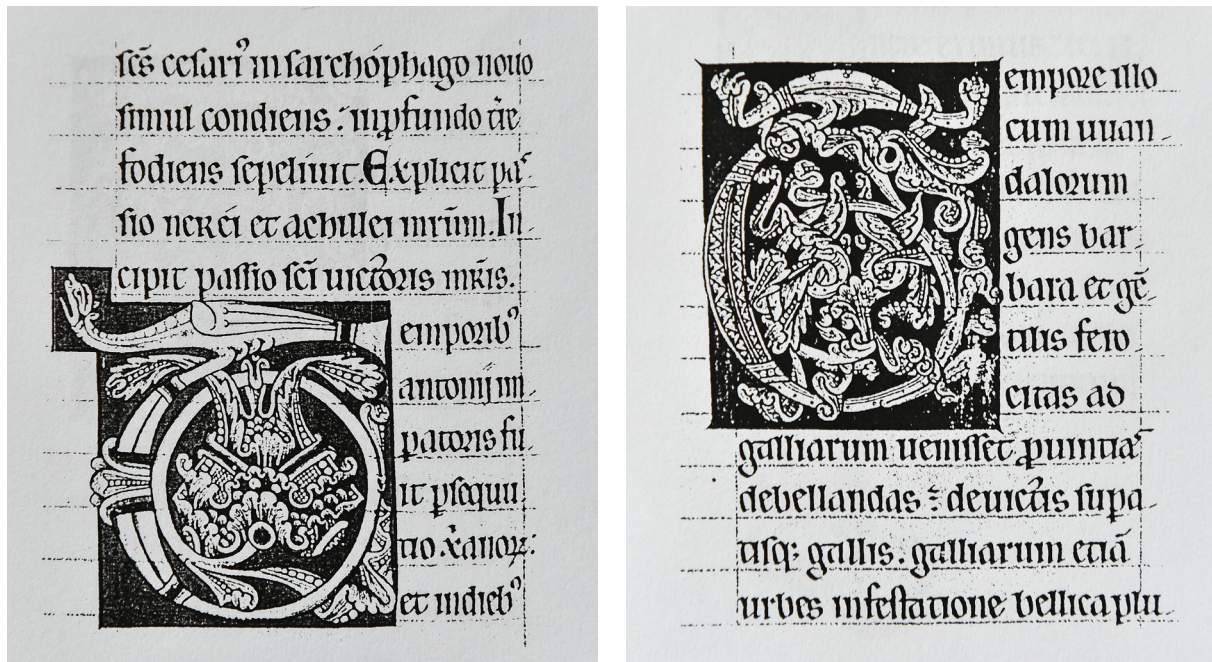 scs̄ cesari᾿ in sarchóphago nouo
simul condiens : inp̱fundo t̄re
fodiens sepeliuit. Explicit pa
sio nerei et achillei mr̄um. In
cipit passio sc̄i uictoris mr̄is.
Temporib᾿
antonij im
patoris fu
it p̱sequu
tio x̄anoꝝ:
et indieb᾿
Tempore illo
cum uuan
dalorum
gens bar
bara et gē
tilis fero
citas ad
galliarum uenisset p̱uintia
debellandas : deuictis supa
tisq; gallis. galliarum etiā
urbes infestatione bellica plu